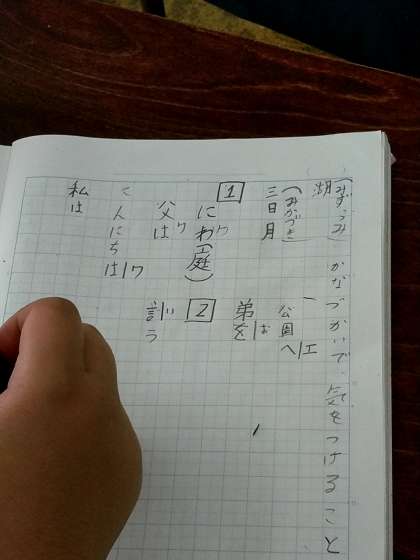 かなづかいで気をつけること
湖(みずうみ)
三日月(みかづき)
1
にわ(庭)ワ
父はワ
こんにちはワ
私は
公園へエ
弟をお
2
言う